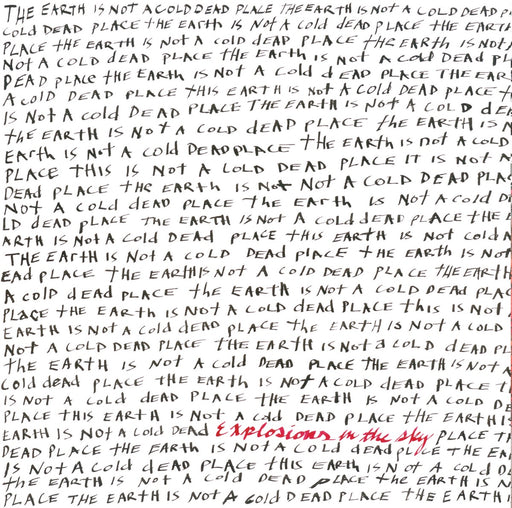 THE EARTH IS NOT A COLD DEAD PLACE THE EARTH IS NOT A COLD DEAD P
COLD DEAD PLACE THE EARTH IS NOT A COLD dEAD PLACE THE EARTH
PLACE THE EARTH IS NOT A COLD DEAD PLACE THE EARTH IS NOT
NOT A COLD DEAD PLACE THE EARTH IS NOT A COLD DEAD PL
DEAD PLACE THE EARTH IS NOT A COLD dEAD PLACE THE EAR
A COLD DEAD PLACE THIS EARTH IS NOT A COLD DEAD PLACE T
IS NOT A COLD DEAD PLACE THE EARTH IS NOT A COLD dE
the EARTH IS NOT A COLD dEAD PLACE THE EARTH IS N
EARTH IS NOT A COLD DEAD PLACE THE EARTH IS NOT A COLD
PLACE THIS IS NOT A COLD DEAD PLACE IT IS NOT A
DEAD PLACE THE EARTH IS NOT NOT A COLD DEAD PLA
NOT A COLD dEAD PLACE THE EARTH IS NOT A COLD D
LD dEAD PLACE THE EARTH IS NOT A COLD dEAD PLACE THE E
ARTH IS NOT A COLD DEAD PLACE THIS EARTH IS NOT COLD A
THE EARTH IS NOT A COLD DEAD PLACE THE EARTH IS NOT
EAD PLACE THE EARTH IS NOT A COLD DEAD PLACE THE EARTH
A COLD dEAD PLACE THE EARTH IS NOT A COLD DEAD PLAC
PLACE THE EARTH IS NOT A COLD DEAD PLACE THIS IS NOT
EARTH IS NOT A COLD DEAD PLACE THE EARTH IS NOT A COLD
NOT A COLD DEAD PLACE THE EARTH IS NOT a COLD dEAD PL
the EARTH IS NOT A COLD DEAD PLACE THE EARTH IS NOT A
COLD dead PLACE THE EARTH IS NOT A COLD dEAD PLACE T
IS NOT A COLD DEAD PLACE THE EARTH IS NOT A COLD DE
PLACE THIS EARTH IS NOT A COLD DEAD PLACE THE EARTH IS
EARTH IS NOT A COLD DEAD Explosions in the sky PLACE TH
DEAD PLACE THE EARTH IS NOT A COLD dEAD PLACE THE EA
IS NOT A COLD dEAD PLACE THIS EARTH IS NOT A COLD D
the EARTH IS NOT A COLD DEAD PLACE THE EARTH IS N
PLACE THE EARTH IS NOT A COLD DEAD PLACE THE EARTH I